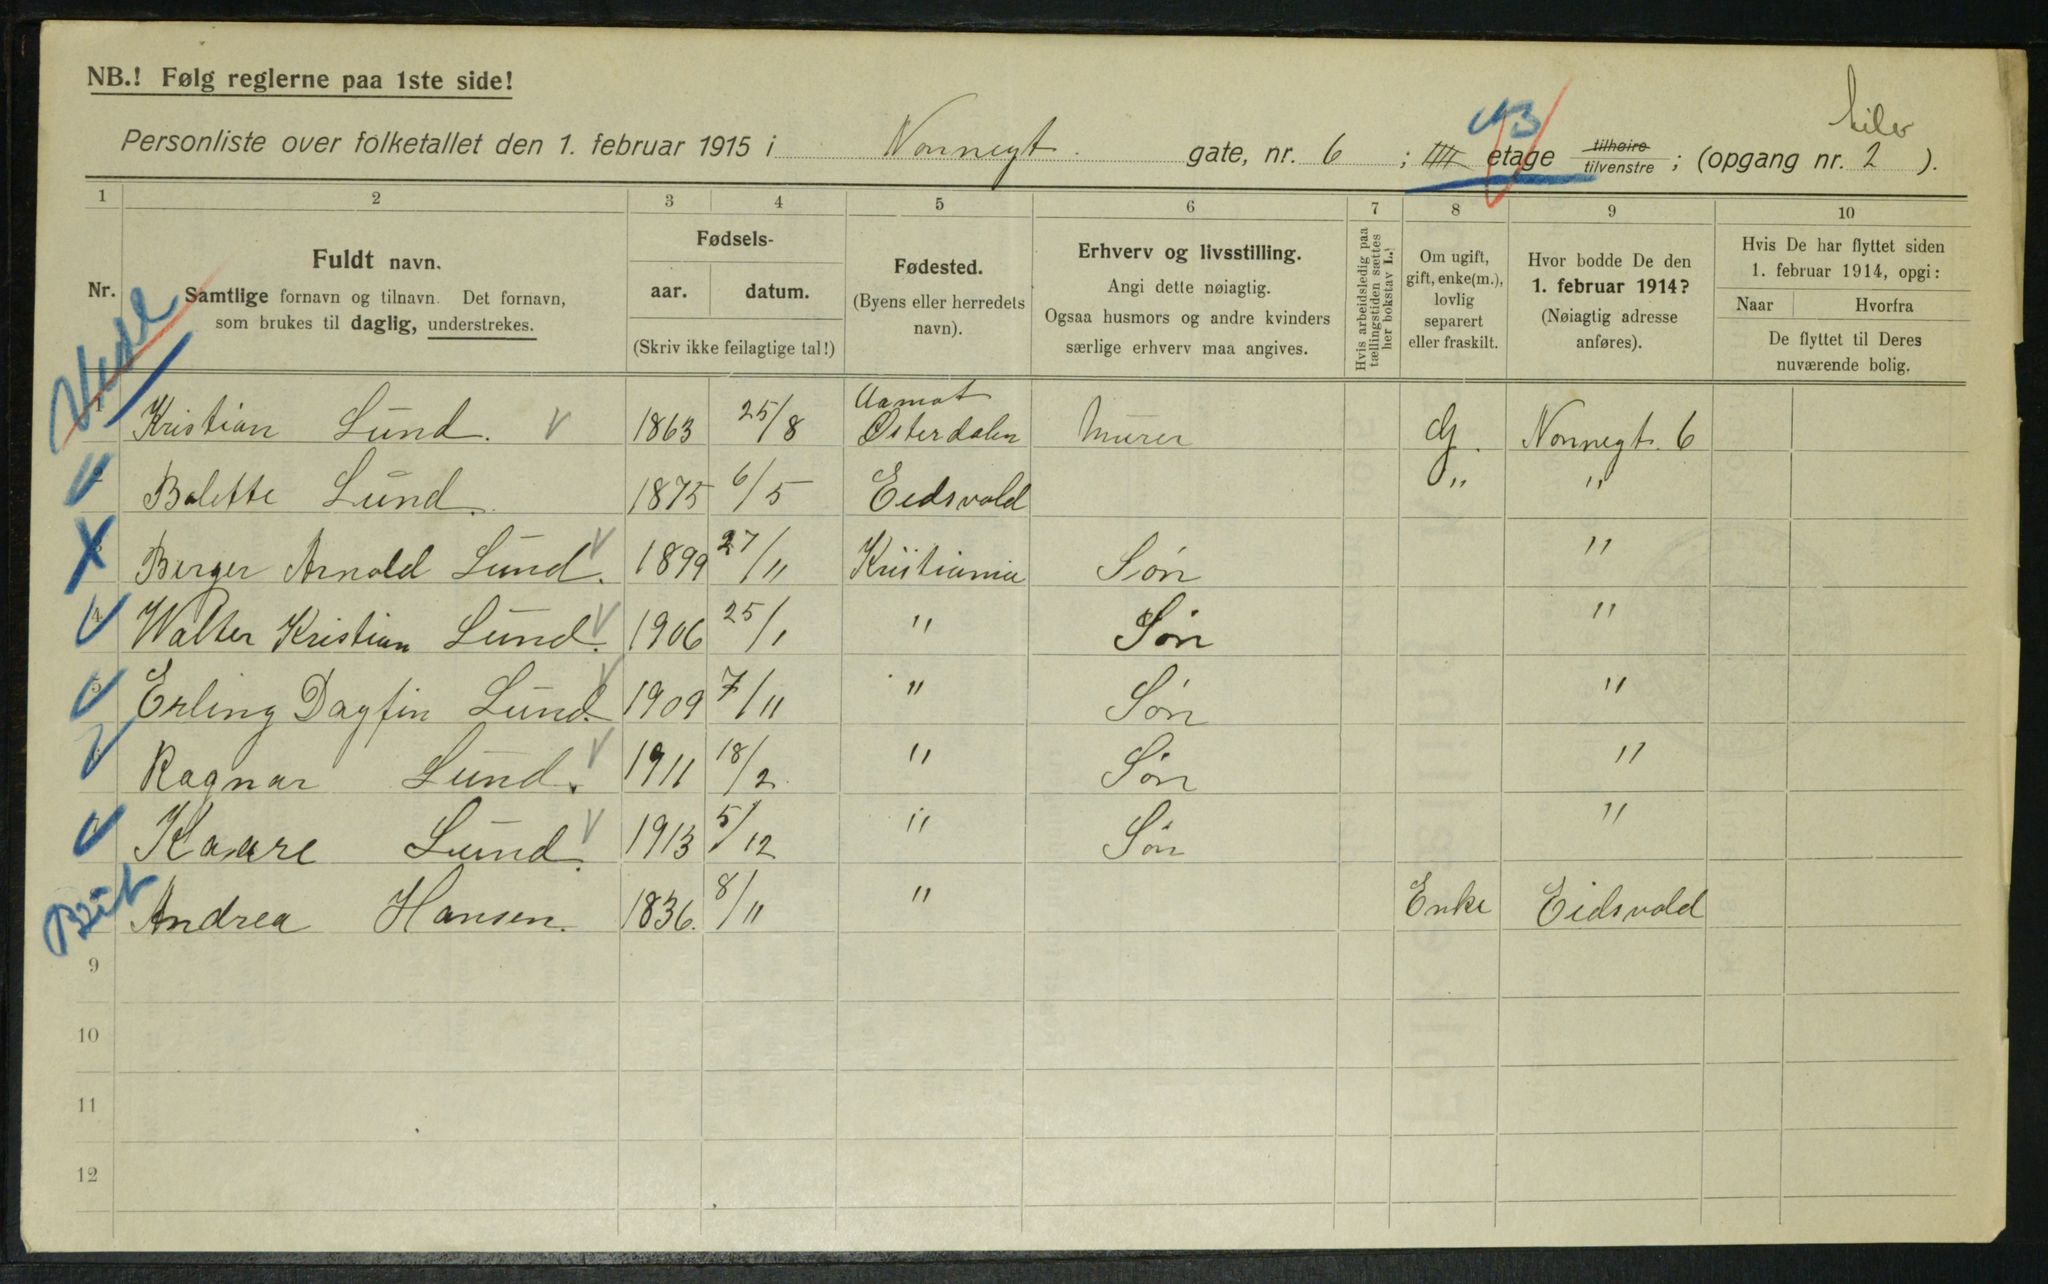 NB.! Følg reglerne paa 1ste side!
Personliste over folketallet den 1. februar 1915 i Nonnegt. gate, nr. 6 ; etage tilhøire tilvenstre ; (opgang nr. 2 ).
1 2 3 4 5 6 7 8 9 10
Nr.
Fuldt navn.
Samtlige fornavn og tilnavn. Det fornavn,
som brukes til daglig, understrekes.
Fødsels-
aar. datum.
(Skriv ikke feilagtige tal!)
Fødested.
(Byens eller herredets
navn).
Erhverv og livsstilling.
Angi dette nøiagtig.
Ogsaa husmors og andre kvinders
særlige erhverv maa angives.
Hvis arbeidsledig paa
tællingstiden sættes
her bokstav L.!
Om ugift,
gift, enke(m.),
lovlig
separert
eller fraskilt.
Hvor bodde De den
1. februar 1914?
(Nøiagtig adresse
anføres).
Hvis De har flyttet siden
1. februar 1914, opgi:
Naar Hvorfra
De flyttet til Deres
nuværende bolig.
1 Kristian Lund. 1863 25/8 Aamot Østerdalen Murer G. Nonnegt. 6
2 Bolette Lund. 1875 6/5 Eidsvold " "
3 Berger Arnold Lund. 1899 27/11 Kristiania Søn "
4 Walter Kristian Lund. 1906 25/1 " Søn "
5 Erling Dagfin Lund. 1909 7/11 " Søn "
Ragnar Lund. 1911 18/2 " Søn "
Kaare Lund. 1913 5/12 " Søn "
Andrea Hansen. 1836. 8/11 " Enke Eidsvold
9
10
11
12